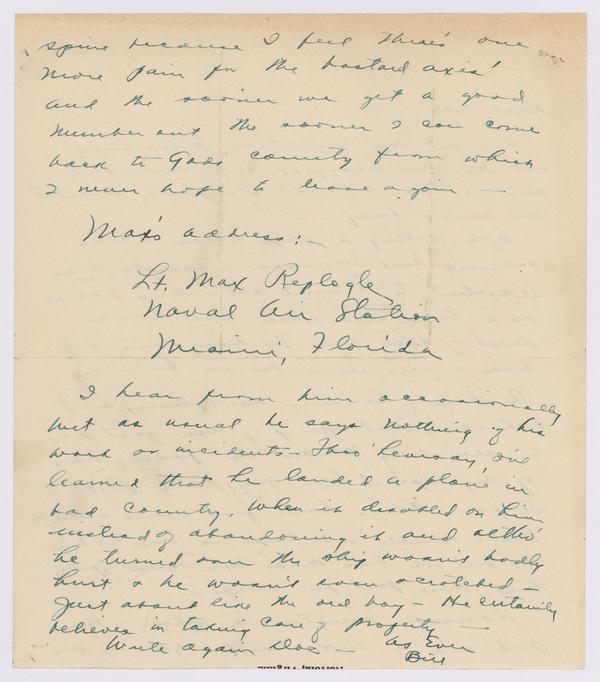 spine because I feel there's one
more pain for the bastard axis'
and the sooner we get a good
number out the sooner I can come
back to Gods country from which
I never hope to leave again —
Max's address:—
Lt. Max Replogle
Naval Air Station
Miami, Florida
I hear from him occasionally
but as usual he says nothing of his
work or incidents – Thro' hearsay, I've
learned that he landed a plane in
bad country, when it disabled on him
instead of abandoning it and altho'
he turned over the ship wasn't badly
hurt & he wasn't even scratched –
Just about like the old boy – He certainly
believes in taking care of property —
Write again Doc – As Ever
Bill